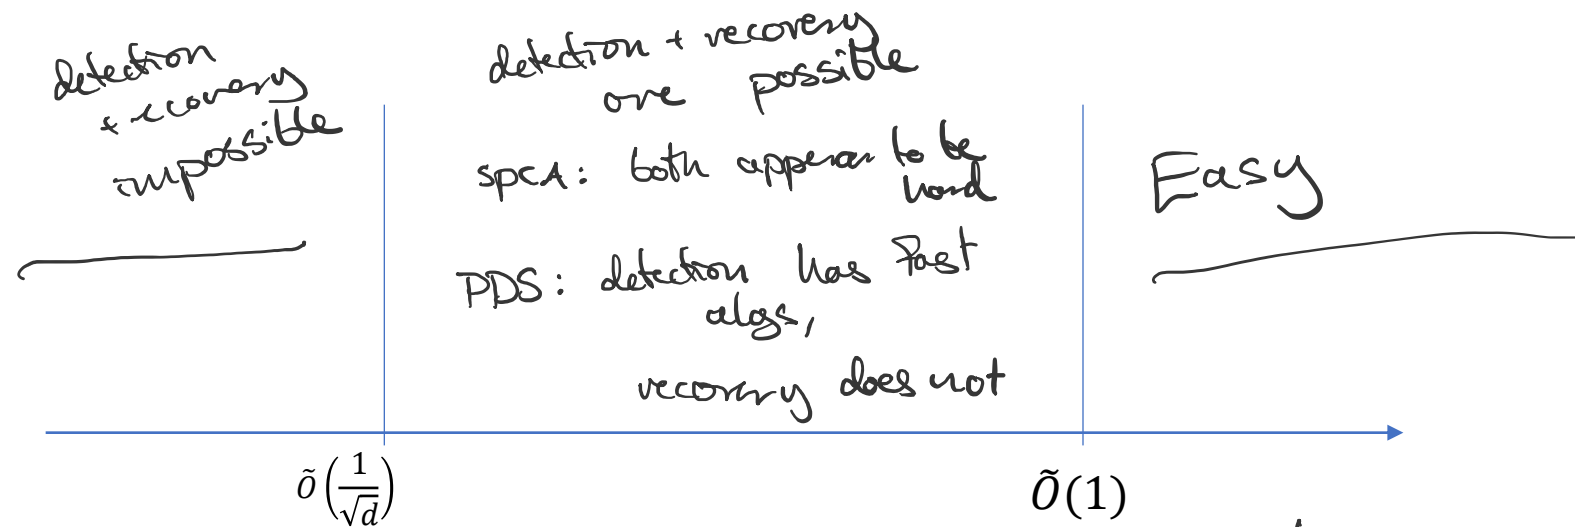 detection
+ recovery
impossible
detection + recovery
are possible
SPCA: both appear to be
hard
PDS: detection has fast
algs,
recovery does not
Easy
Õ(1/√d)
Õ(1)